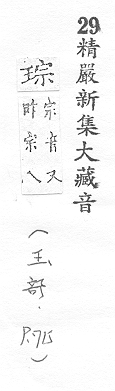 29精嚴新集大藏音
琮
宗音又
昨宗八
(玉部.